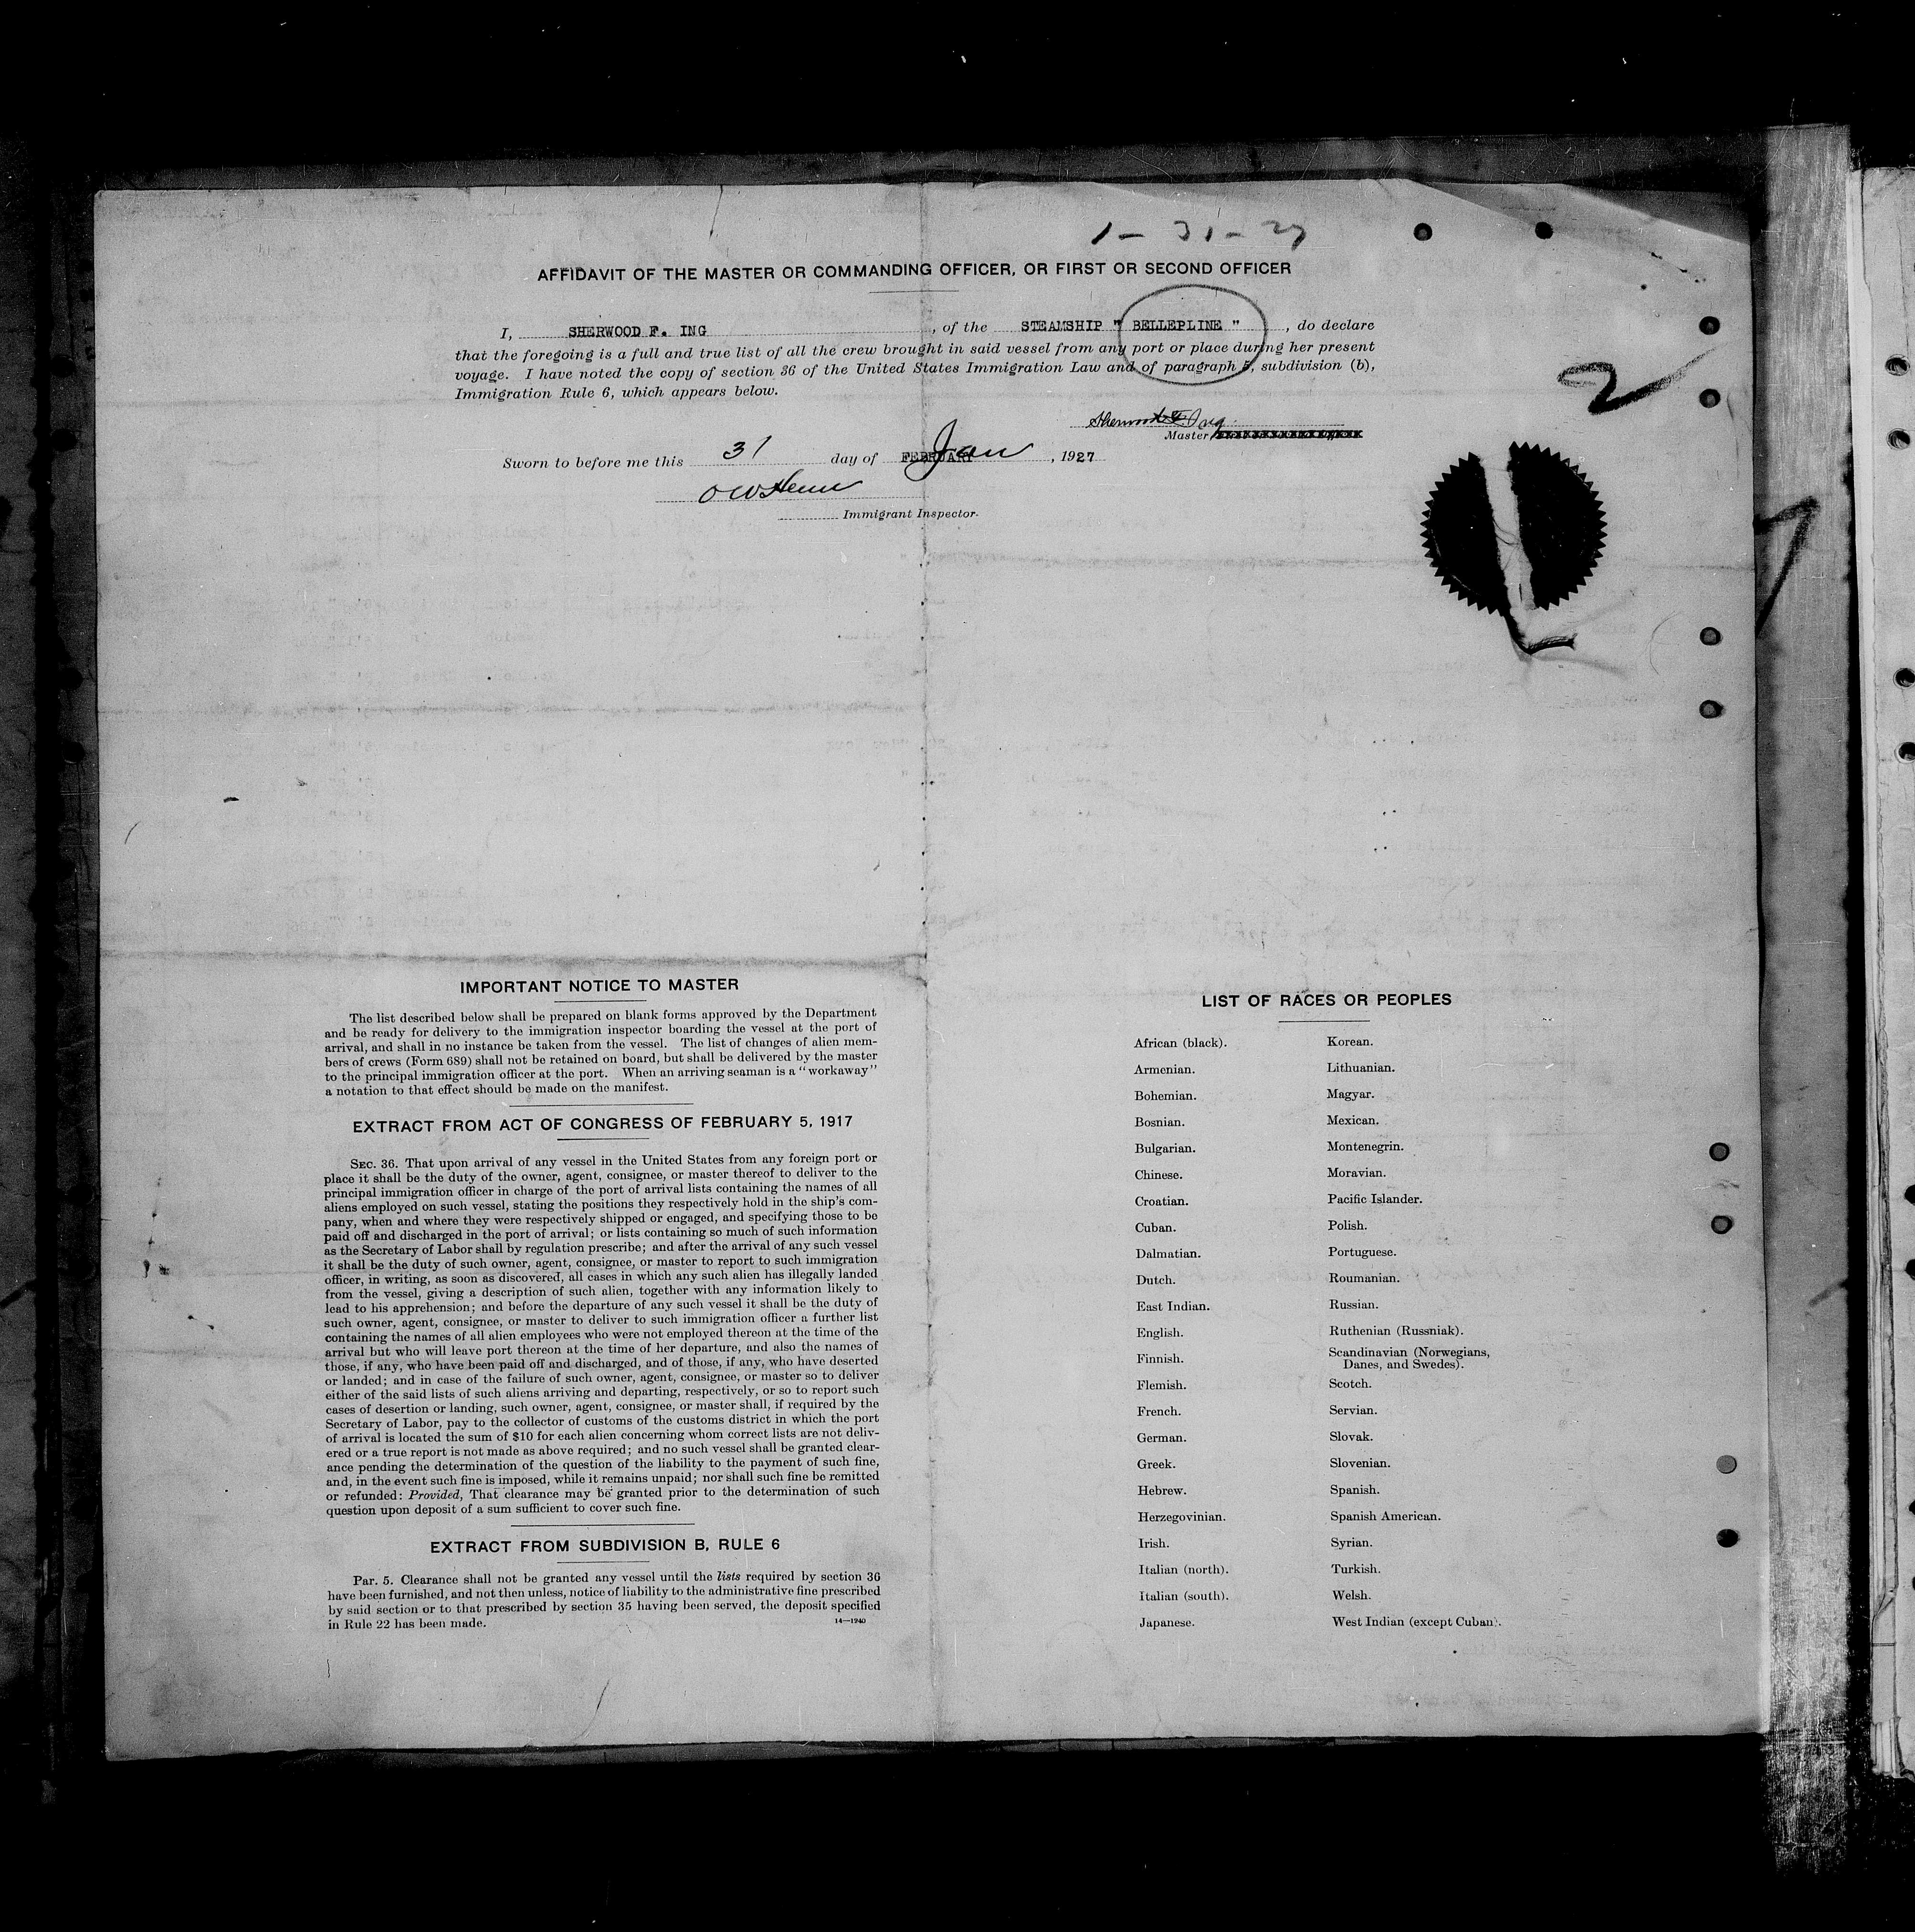 1-31-27
AFFIDAVIT OF THE MASTER OR COMMANDING OFFICER, OR FIRST OR SECOND OFFICER
I, SHERWOOD F. ING, of the STEAMSHIP " BELLEPLINE ", do declare
that the foregoing is a full and true list of all the crew brought in said vessel from any port or place during her present
voyage. I have noted the copy of section 36 of the United States Immigration Law and of paragraph 5, subdivision (b),
Immigration Rule 6, which appears below.
2
Sherwood F Ing
Master
Sworn to before me this 31 day of FEBRUARY Jan, 1927
Immigrant Inspector.
IMPORTANT NOTICE TO MASTER
The list described below shall be prepared on blank forms approved by the Department
and be ready for delivery to the immigration inspector boarding the vessel at the port of
arrival, and shall in no instance be taken from the vessel. The list of changes of alien mem-
bers of crews (Form 689) shall not be retained on board, but shall be delivered by the master
to the principal immigration officer at the port. When an arriving seaman is a "workaway"
a notation to that effect should be made on the manifest.
EXTRACT FROM ACT OF CONGRESS OF FEBRUARY 5, 1917
SEC. 36. That upon arrival of any vessel in the United States from any foreign port or
place it shall be the duty of the owner, agent, consignee, or master thereof to deliver to the
principal immigration officer in charge of the port of arrival lists containing the names of all
aliens employed on such vessel, stating the positions they respectively hold in the ship's com-
pany, when and where they were respectively shipped or engaged, and specifying those to be
paid off and discharged in the port of arrival; or lists containing so much of such information
as the Secretary of Labor shall by regulation prescribe; and after the arrival of any such vessel
it shall be the duty of such owner, agent, consignee, or master to report to such immigration
officer, in writing, as soon as discovered, all cases in which any such alien has illegally landed
from the vessel, giving a description of such alien, together with any information likely to
lead to his apprehension; and before the departure of any such vessel it shall be the duty of
such owner, agent, consignee, or master to deliver to such immigration officer a further list
containing the names of all alien employees who were not employed thereon at the time of the
arrival but who will leave port thereon at the time of her departure, and also the names of
those, if any, who have been paid off and discharged, and of those, if any, who have deserted
or landed; and in case of the failure of such owner, agent, consignee, or master so to deliver
either of the said lists of such aliens arriving and departing, respectively, or so to report such
cases of desertion or landing, such owner, agent, consignee, or master shall, if required by the
Secretary of Labor, pay to the collector of customs of the customs district in which the port
of arrival is located the sum of $10 for each alien concerning whom correct lists are not deliv-
ered or a true report is not made as above required; and no such vessel shall be granted clear-
ance pending the determination of the question of the liability to the payment of such fine,
and, in the event such fine is imposed, while it remains unpaid; nor shall such fine be remitted
or refunded: Provided, That clearance may be granted prior to the determination of such
question upon deposit of a sum sufficient to cover such fine.
EXTRACT FROM SUBDIVISION B, RULE 6
Par. 5. Clearance shall not be granted any vessel until the lists required by section 36
have been furnished, and not then unless, notice of liability to the administrative fine prescribed
by said section or to that prescribed by section 35 having been served, the deposit specified
in Rule 22 has been made. 14—1940
LIST OF RACES OR PEOPLES
African (black).
Armenian.
Bohemian.
Bosnian.
Bulgarian.
Chinese.
Croatian.
Cuban.
Dalmatian.
Dutch.
East Indian.
English.
Finnish.
Flemish.
French.
German.
Greek.
Hebrew.
Herzegovinian.
Irish.
Italian (north).
Italian (south).
Japanese.
Korean.
Lithuanian.
Magyar.
Mexican.
Montenegrin.
Moravian.
Pacific Islander.
Polish.
Portuguese.
Roumanian.
Russian.
Ruthenian (Russniak).
Scandinavian (Norwegians,
Danes, and Swedes).
Scotch.
Servian.
Slovak.
Slovenian.
Spanish.
Spanish American.
Syrian.
Turkish.
Welsh.
West Indian (except Cuban).